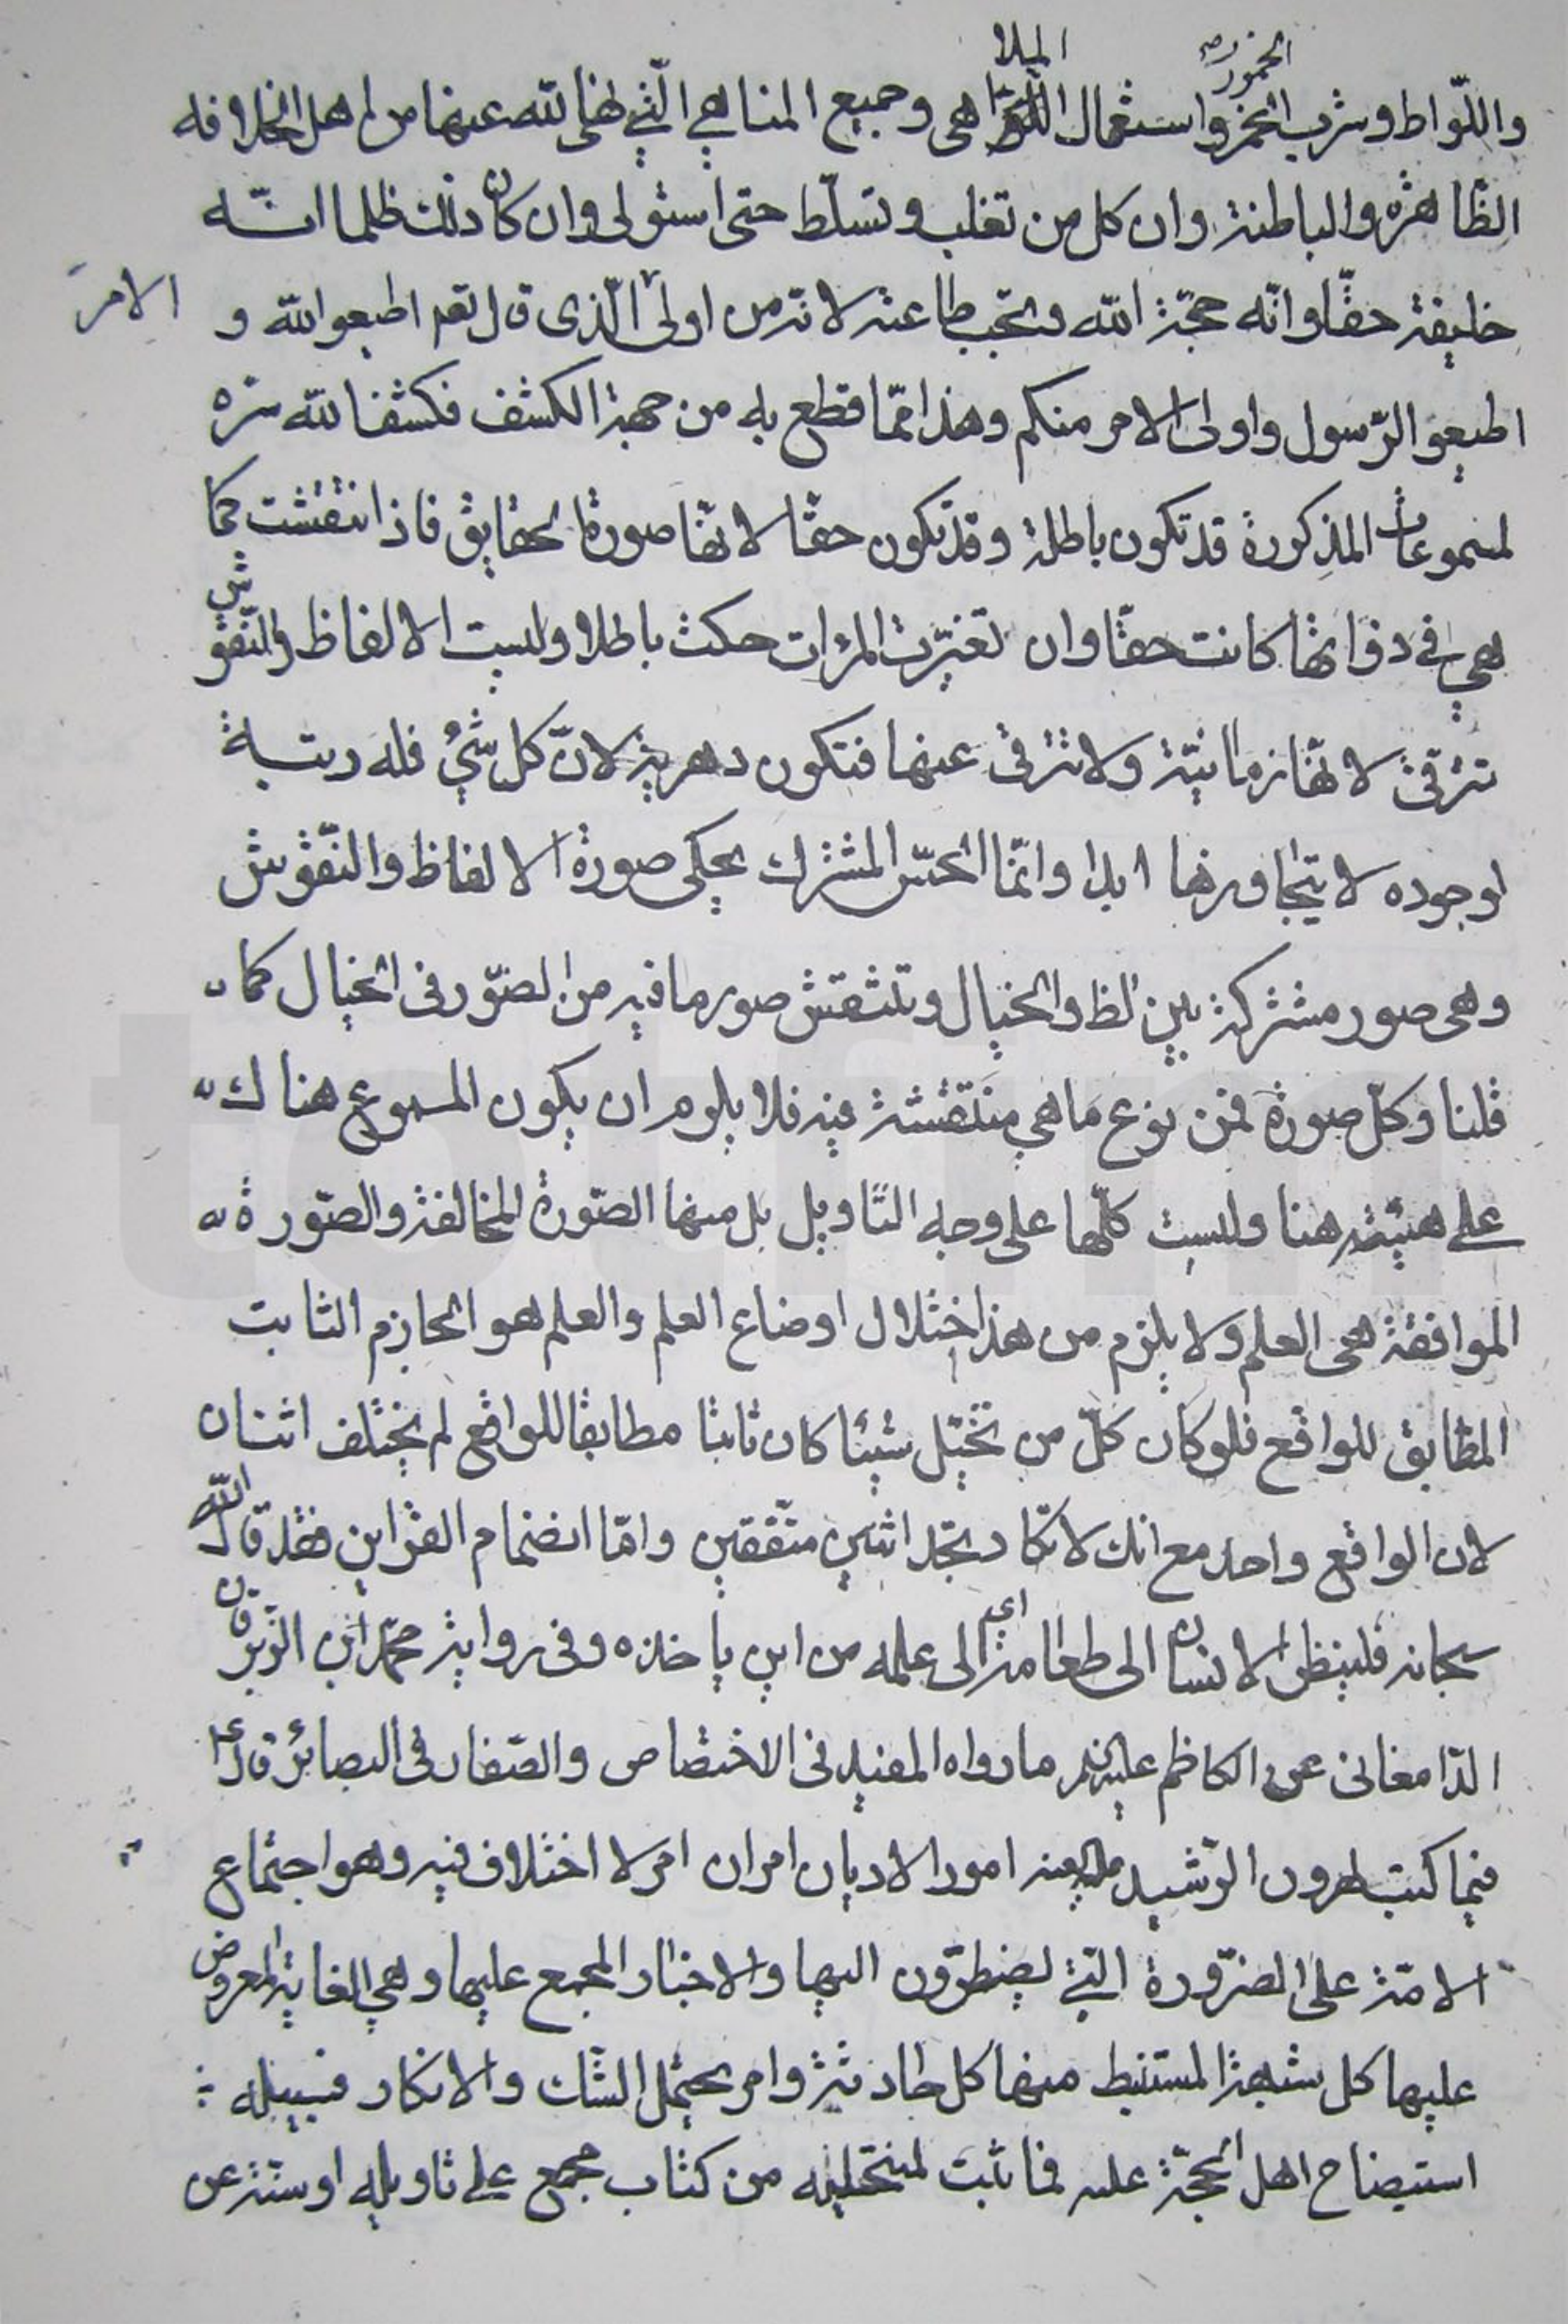 الخمور الملا
واللّواط وشرب الخمر واستعمال الملاهي وجميع المناهي الّتي نهى الله عنها من لم هل الخلافه
الظّاهرة والباطنة وان كل من تغلب وتسلّط حتى استولى وان كان ذلك ظلما انّه
خليفة حقّا وانّه حجّة الله وتجب طاعته لانّه من اولى الّذى قال تعه اطيعوا لله و
الامر
اطيعو الرّسول واولى الامر منكم وهذا ممّا قطع به من جهة الكشف فكشف الله سرّه
لمسموعات المذكورة قد تكون باطلة وقد تكون حقّا لانّها صورة الحقايق فاذا انتقشت كما
هي في ذواتها كانت حقّا وان تغيّرت المرءات حكت باطلا وليست الالفاظ والنّقوش
تترقىّ لانّها زمانيّة ولا تترقى عنها فتكون دهرية لانّ كل شيء فله رتبة
اوجوده لا يتجاوزها ابدا وانّما الحسّ المشترك يحكى صورة الالفاظ والنّقوش
وهى صور مشتركة بين لظ والخيال وتنتقش صور ما فيه من الصّور فى الخيال كما
قلنا وكلّ صورة فمن نوع ما هي منتقشة فيه فلا يلوم ان يكون المسموع هناك
على هيئته هنا وليست كلّها على وجه التّاويل بل منها الصّورة المخالفة والصّورة
الموافقة هى العلم ولا يلزم من هذا اختلال اوضاع العلم والعلم هو الجازم الثابت
المطابق للواقع فلو كان كلّ من تخيّل شيئا كان ثابتا مطابقا للواقع لم يختلف اثنان
لان الواقع واحد مع انك لا تكاد تجد اثنين متّفقين وامّا انضمام القراين فقد قال الله
سبحانه فلينظر الانسان الى طعامه اي الى علمه من اين ياخذه وفى رواية محمّد ابن الزّبرقان
الدّامغانى عن الكاظم عليه السلام ما رواه المفيد فى الاختصاص والصّفار فى البصائر قال
فيما كتب لهرون الرّشيد امور الاديان امران امر لا اختلاف فيه وهو اجتماع
الامّة على الضّرورة الّتي يضطرّون اليها والاخبار المجمع عليها وهي الغاية المعروض
عليها كل شبهة المستنبط منها كل حادثة وامر يحتمل الشّك والانكار فسبيله
استيضاح اهل الحجّة عليه فما ثبت لمنتحليه من كتاب مجمع على تاويله او سنّة عن